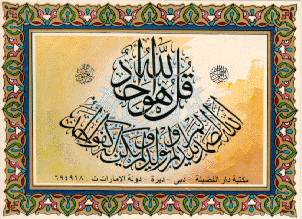 قل هو الله أحد
الله الصمد لم يلد ولم يولد ولم يكن له كفوا أحد
مكتبة دار الفضيلة - دبى - ديرة - دولة الامارات ت : ٦٩٤٩٦٨